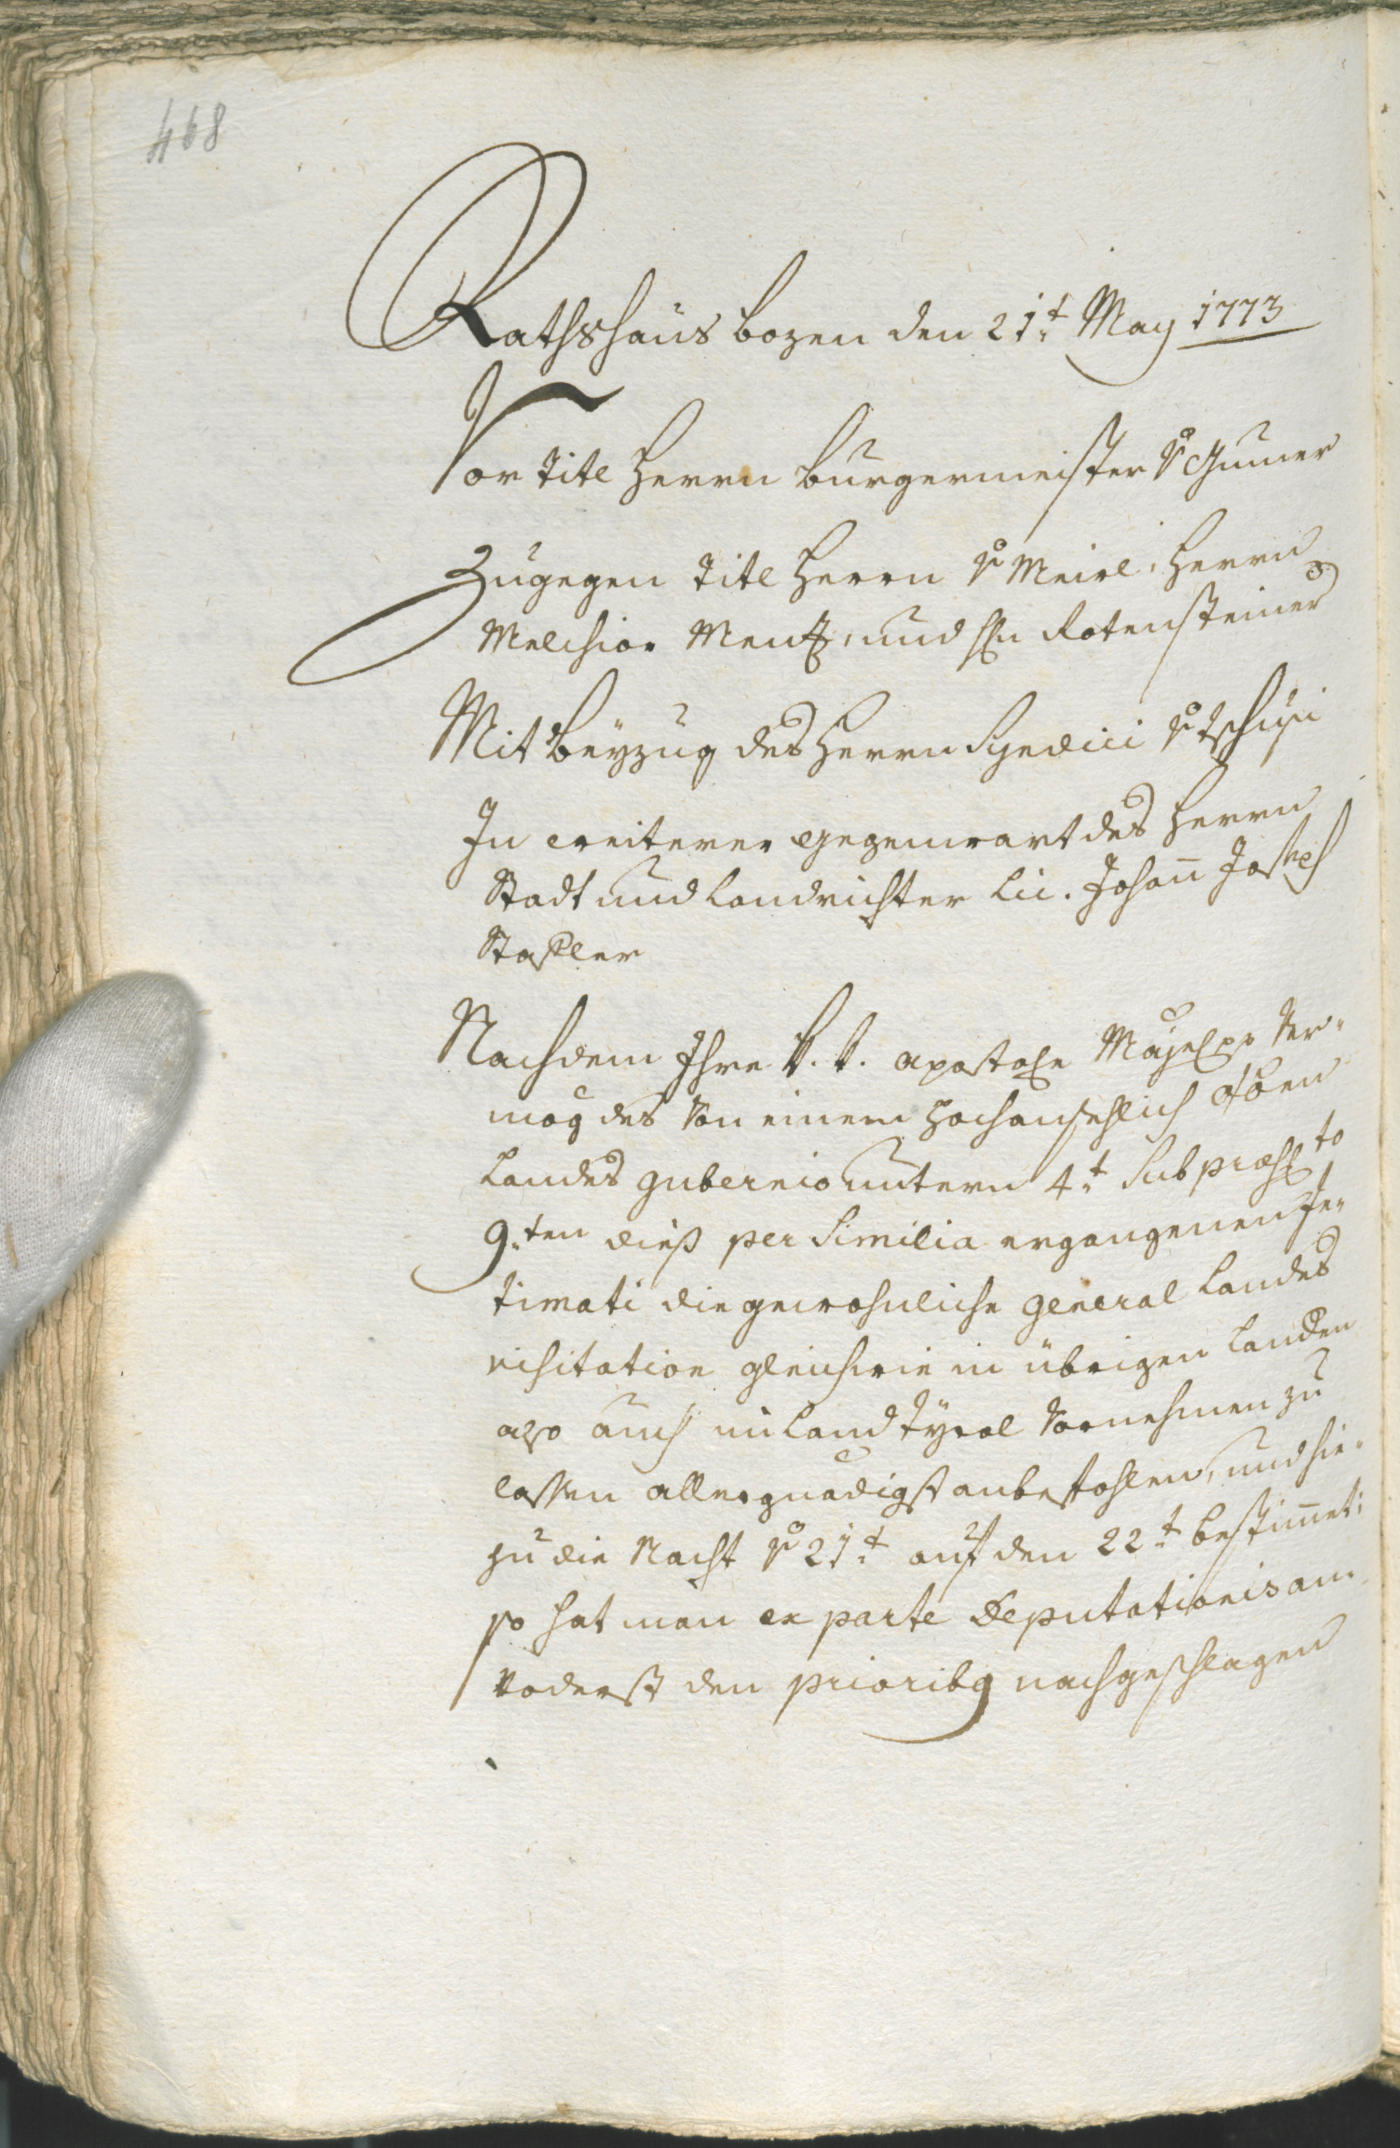 468
Rathshaus bozen den 21:t May 1773
Vor Titl herrn burgermeister v Gumer
Zugegen Titl herrn v Meirl, herrn
Melchior Mentz, und hln Rotensteiner
Mit beyzug des herrn Syndici v
In weiterer gegenwart des herrn
Stadt und landrichter lic. Johann Joseph
Stapler
Nachdem Ihre k. k. apostole Mayestet ver-
mög des von einem hochansehlich oben
landes gubernio untern 4:t sub præsto
9:ten dieß per similia ergangenen In-
timati die gewohnliche general landes
visitation gleichwie in übrigen landen
also auch im land tyrol vornehmen zu
lassen allergnädigst anbefohlen, und hie-
zu die Nacht v 21:t auf den 22:t bestimmet:
so hat man ex parte Deputationis am
voderst den prioribq nachgeschlagen